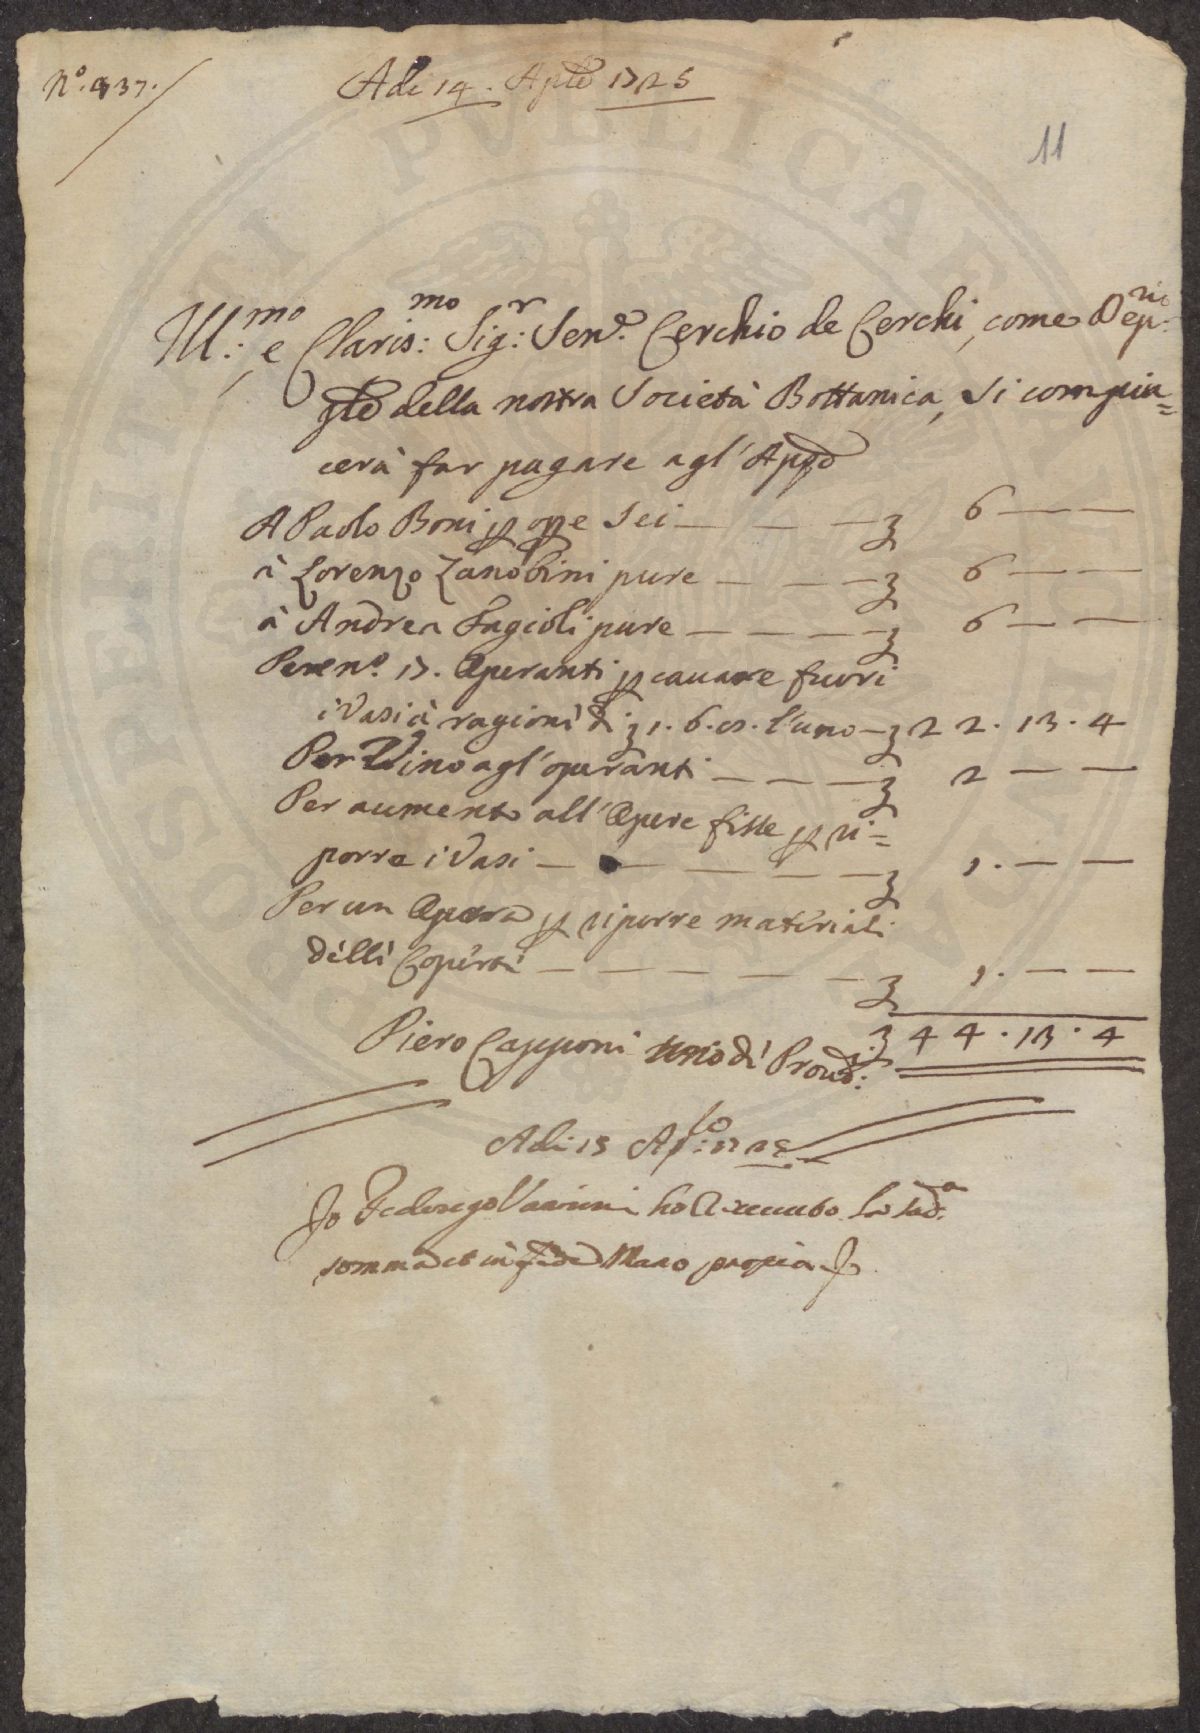 N.º 437.
Adi 14. Aple 1725
11
Ill:mo, e Claris:mo Sig:r Sen.e Cerchio de Cerchi, come Dep:
della nostra Società Bottanica, si compia=
cerà far pagare agl'
A Paolo Boni p opre Sei — — — 6 — —
à Lorenzo Zanobini pure — — — 6 — —
à Andrea Fagioli pure — — — — 6 — —
Per n.º 17. Operanti p cauare fuori
i Vasi à ragioni di 1. 6. 8. l'uno — 22. 13. 4
Per Vino agl'operanti — — — 2 — —
Per aumento all'Opere fisse p ri=
porre i Vasi — — — — — 1. — —
Per un Opera p riporre materiali
delli Coperti — — — — — — 1. — —
Piero Capponi uno di Proud: 44. 13. 4
Adi 15 Ap:lo 1725
Io Federigo Vannini ho riceuuto la sud.a
somma et in fede Mano propria